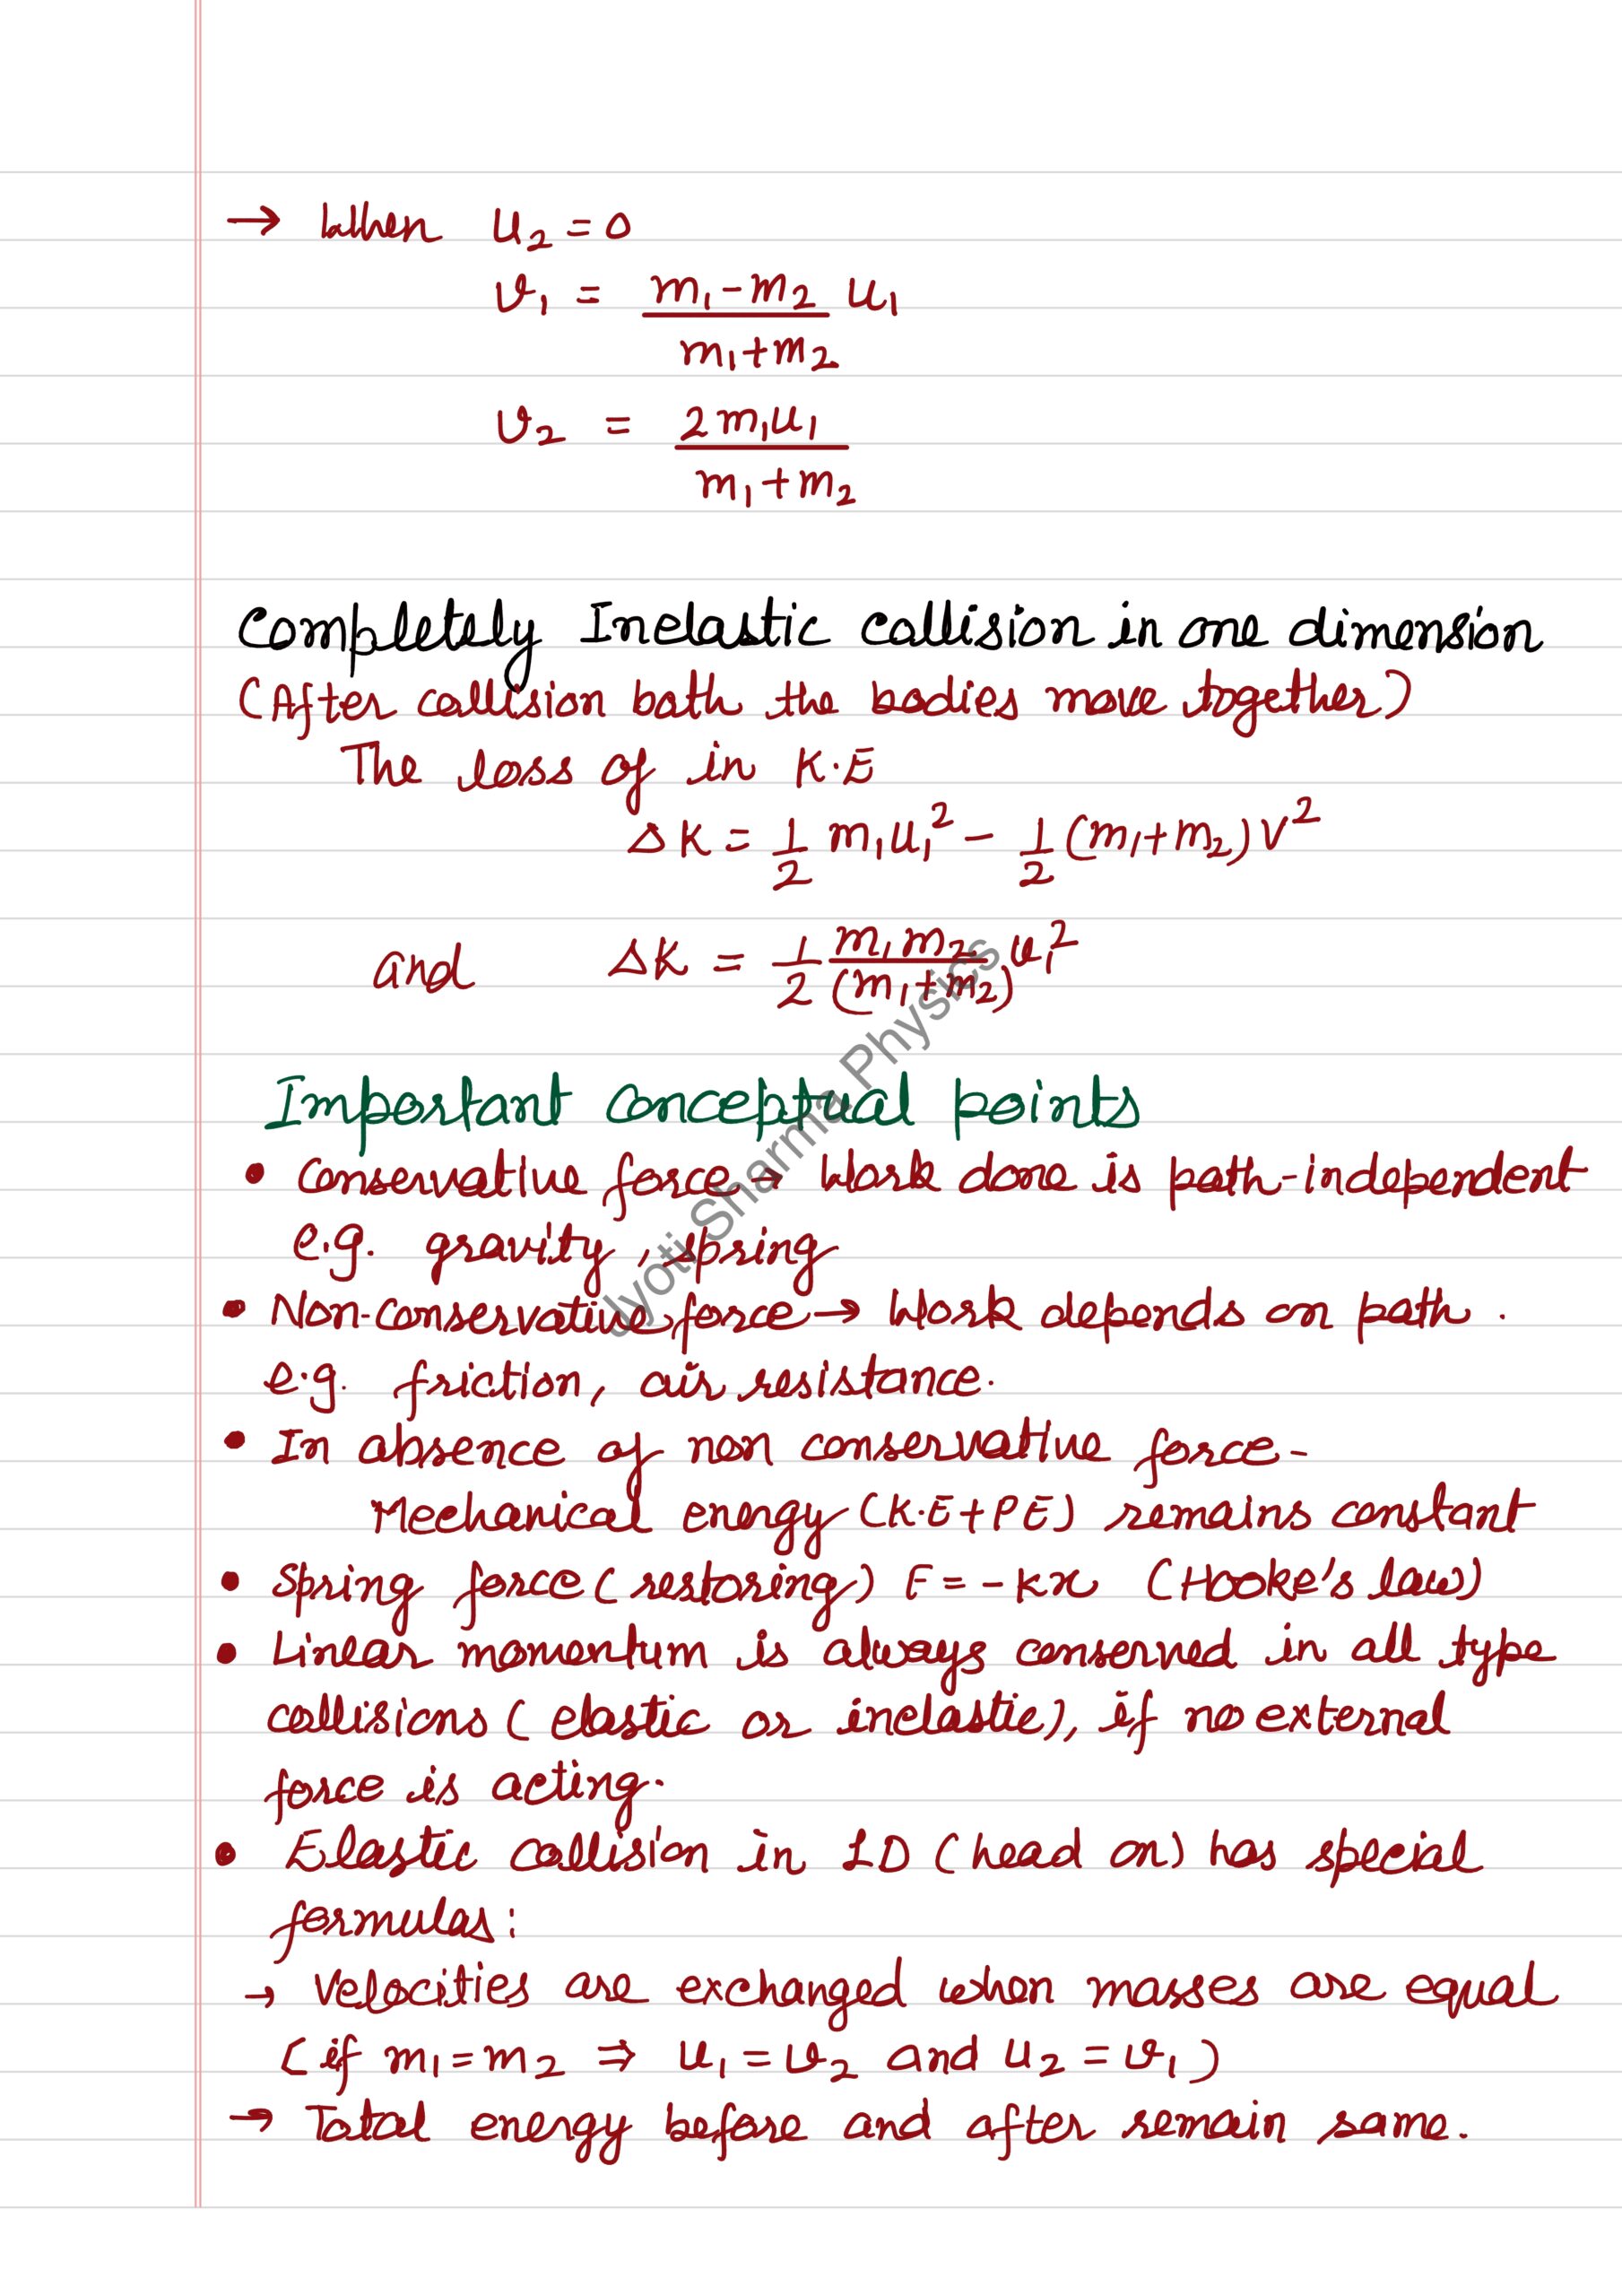 → When u₂ = 0
v₁ = (m₁ - m₂)/(m₁ + m₂) u₁
v₂ = 2m₁u₁/(m₁ + m₂)
Completely Inelastic collision in one dimension
(After collision both the bodies move together)
The loss of in K.E
ΔK = 1/2 m₁u₁² - 1/2 (m₁+m₂)V²
and ΔK = 1/2 m₁m₂/(m₁+m₂) u₁²
Important conceptual points
• Conservative force → Work done is path-independent
e.g. gravity, spring
• Non-conservative force → Work depends on path.
e.g. friction, air resistance.
• In absence of non conservative force-
Mechanical energy (K.E + PE) remains constant
• Spring force (restoring) F = -Kx (Hooke's law)
• Linear momentum is always conserved in all type
collisions (elastic or inelastic), if no external
force is acting.
• Elastic collision in 1D (head on) has special
formulas:
→ Velocities are exchanged when masses are equal
(if m₁ = m₂ ⇒ u₁ = v₂ and u₂ = v₁)
→ Total energy before and after remain same.
Jyoti Sharma Physics